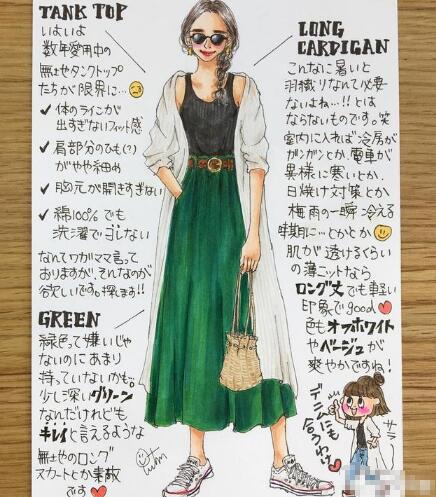 TANK TOP
いよいよ
数年愛用中の
無地タンクトップ
たちが限界に…
✓ 体のラインが
出すぎないフィット感
✓ 肩部分のひも(?)
がやや細め
✓ 胸元が開きすぎない
✓ 綿100%でも
洗濯でヨレない
なんてワガママ言って
おりますが、それなのが
欲しいです。探します!!
GREEN
緑色って嫌いじゃ
ないのにあまり
持っていないかも。
少し深いグリーン
なんだけれども
キレイと言えるような
無地のロング
スカートとか素敵
です
LONG
CARDIGAN
こんなに暑いと
羽織りなんて必要
ないよね…!!とは
ならないものです。笑
室内に入れば冷房が
ガンガンとか、電車が
異様に寒いとか、
日焼け対策とか
梅雨の一瞬冷える
時期に…とかとか
肌が透けるくらい
の薄ニットなら
ロング丈でも軽い
印象でgood
色もオフホワイト
やベージュが
爽やかですね!
デニムにも
合うわけ
サラ